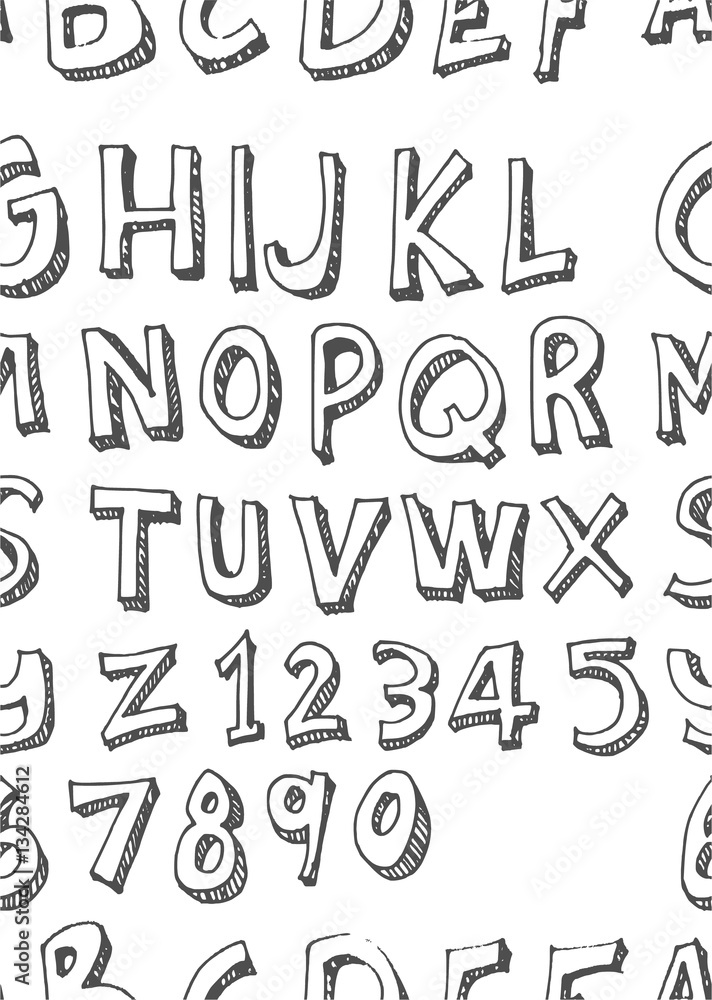 A B C D E F A
G H I J K L G
M N O P Q R M
S T U V W X S
Y Z 1 2 3 4 5 Y
6 7 8 9 0 6
A B C D E F A
Adobe Stock | #134284612